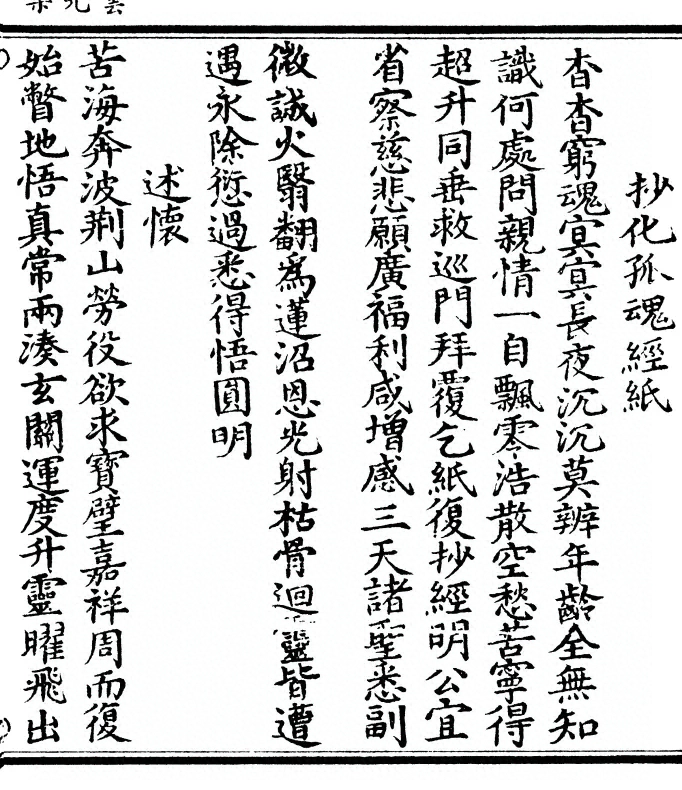 抄化孤魂經紙
杳杳窮魂冥冥長夜沉沉莫辨年齡全無知
識何處問親情一自飄零浩散空愁苦寧得
超升同垂救巡門拜覆乞紙復抄經明公宜
省察慈悲願廣福利咸增感三天諸聖悉副
微誠火翳翻為蓮沼恩光射枯骨迴靈皆遭
遇永除愆過悉得悟圓明
述懷
苦海奔波荆山勞役欲求寶璧嘉祥周而復
始瞥地悟真常兩湊玄關運度升靈曜飛出